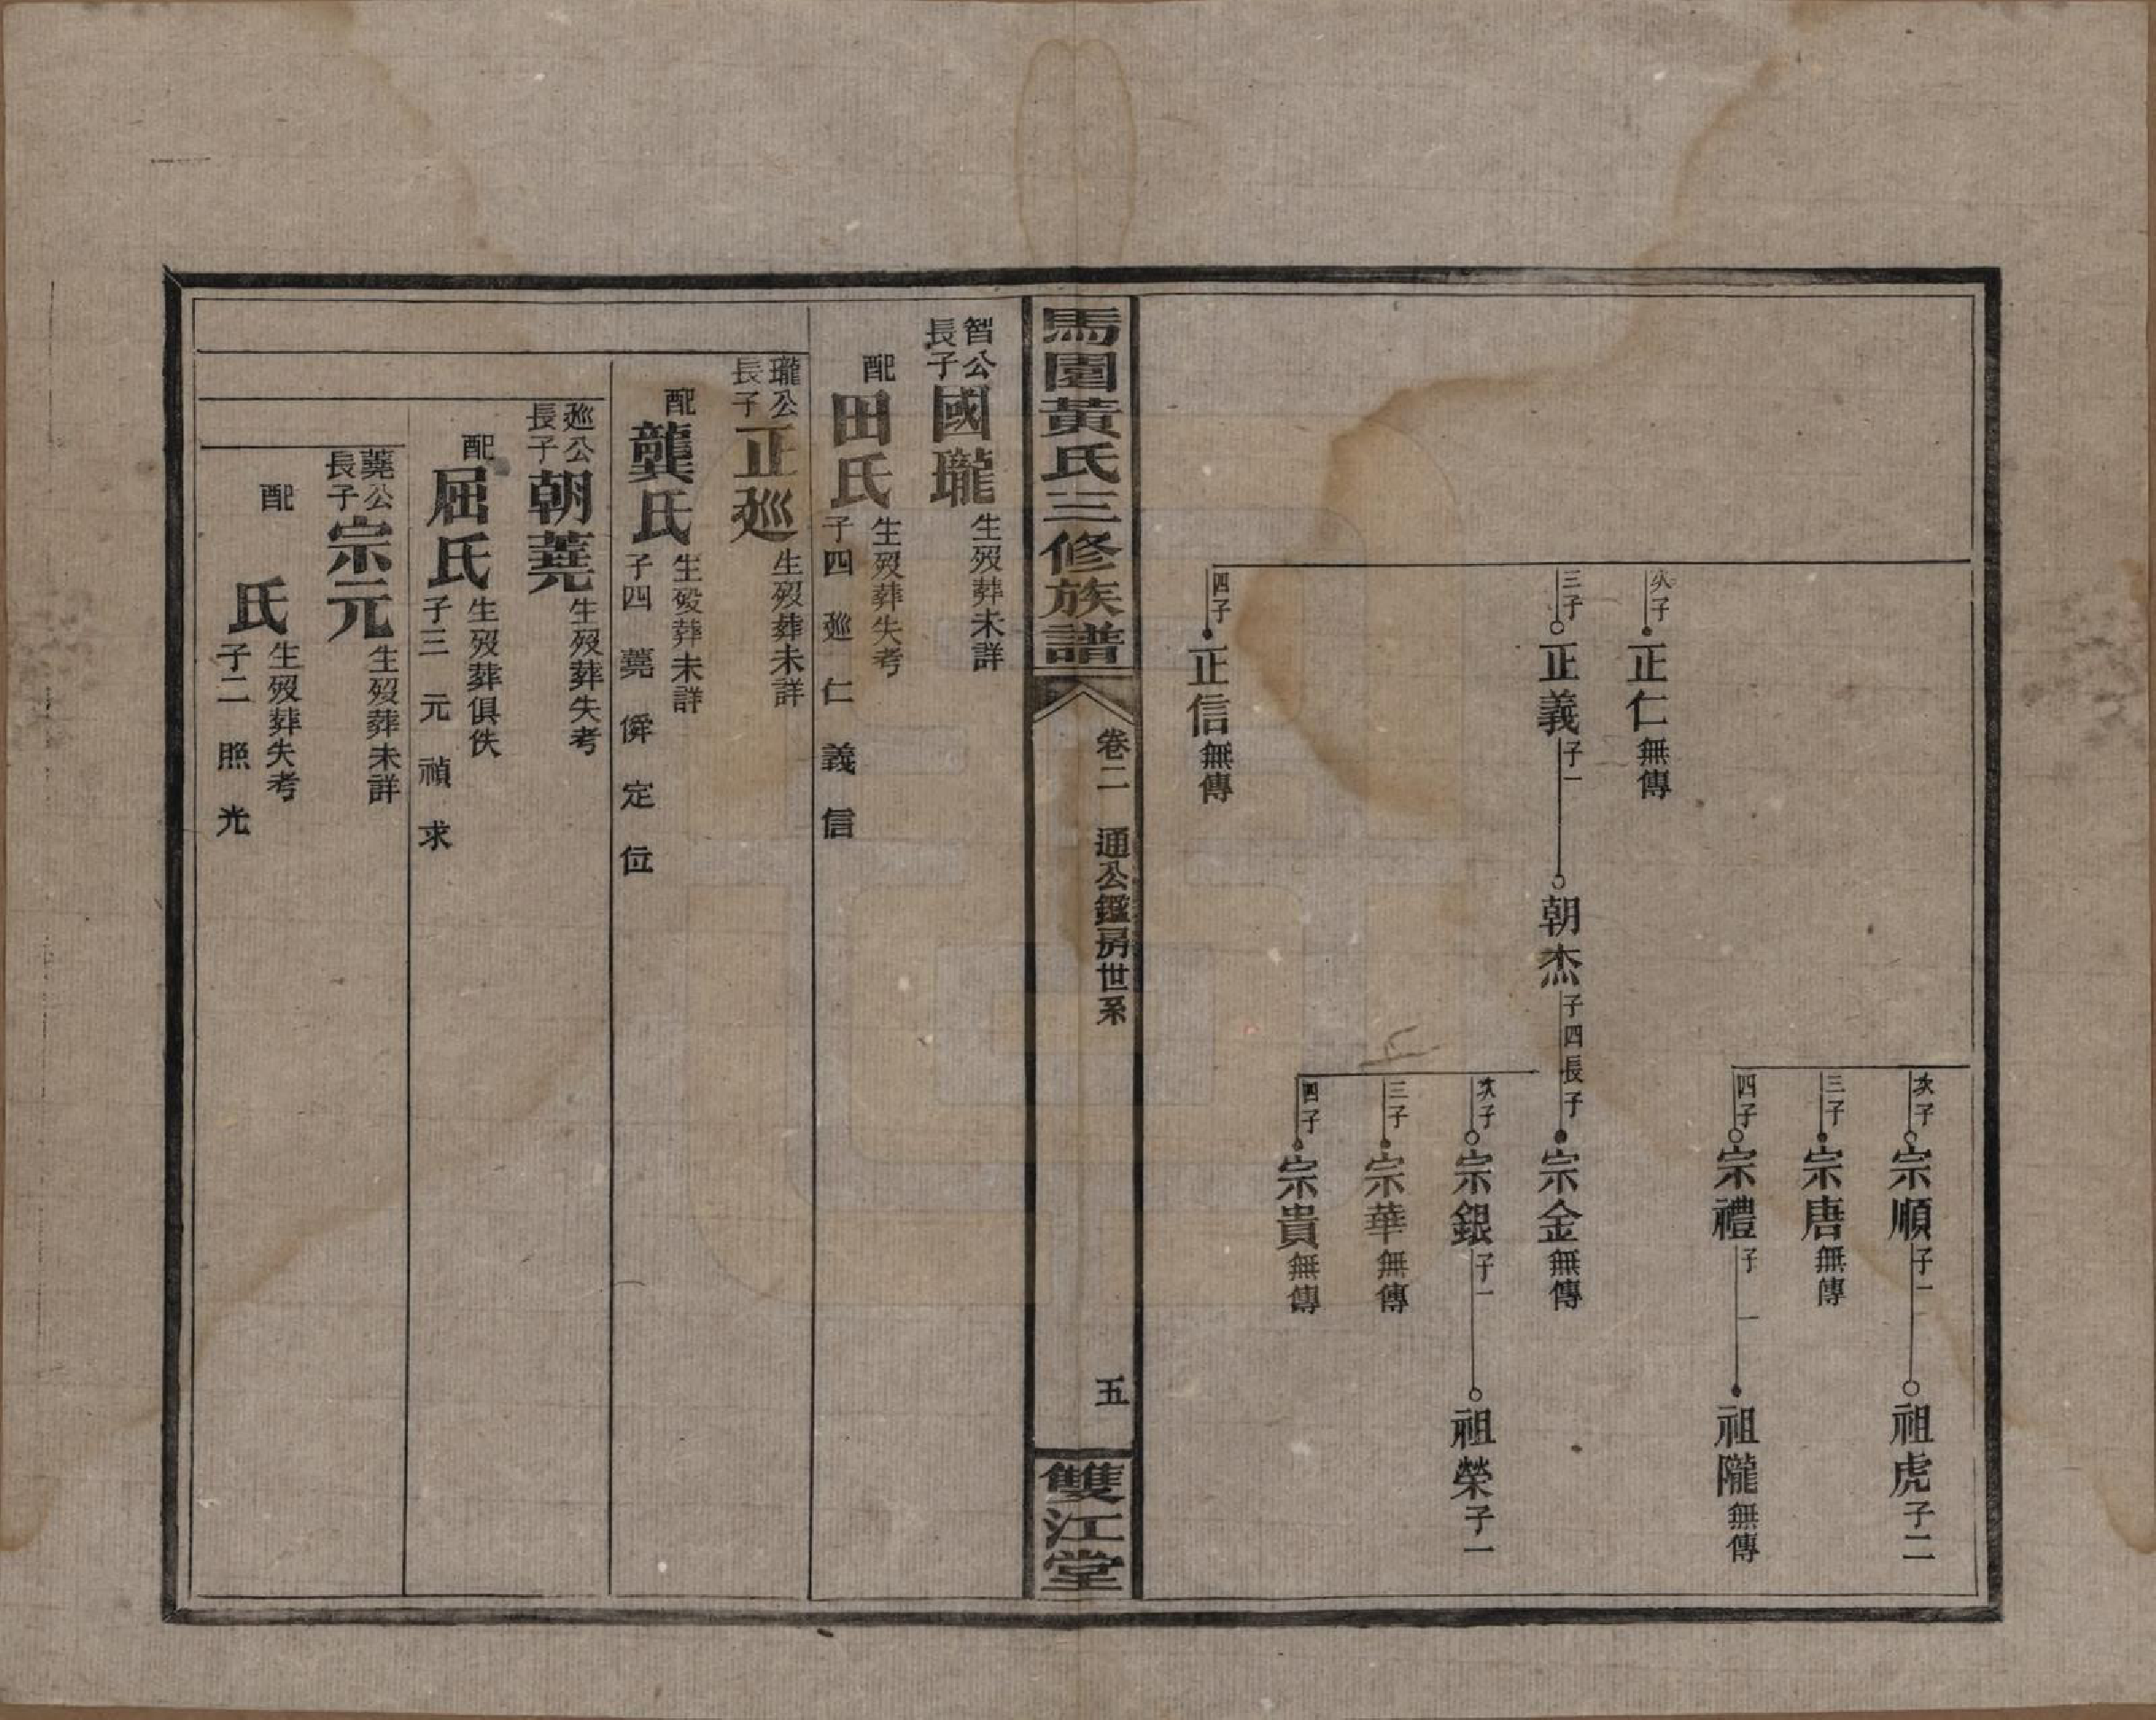 次子 宗順 子一 祖虎 子二
三子 宗唐 無傳
四子 宗禮 子一 祖隴 無傳
次子 正仁 無傳
三子 正義 子一 朝杰 子四長子 宗金 無傳
次子 宗銀 子一 祖榮 子一
三子 宗華 無傳
四子 宗貴 無傳
四子 正信 無傳
馬園黃氏三修族譜
卷二 通公鑑房世系
五
雙江堂
智公
長子
國瓏
生歿葬未詳
配
田氏
生歿葬失考
子四 廵 仁 義 信
瓏公
長子
正廵
生歿葬未詳
配
龔氏
生歿葬未詳
子四 蕘 傑 定 位
廵公
長子
朝蕘
生歿葬失考
配
屈氏
生歿葬俱佚
子三 元 禎 求
蕘公
長子
宗元
生歿葬未詳
配
氏
生歿葬失考
子二 照 光